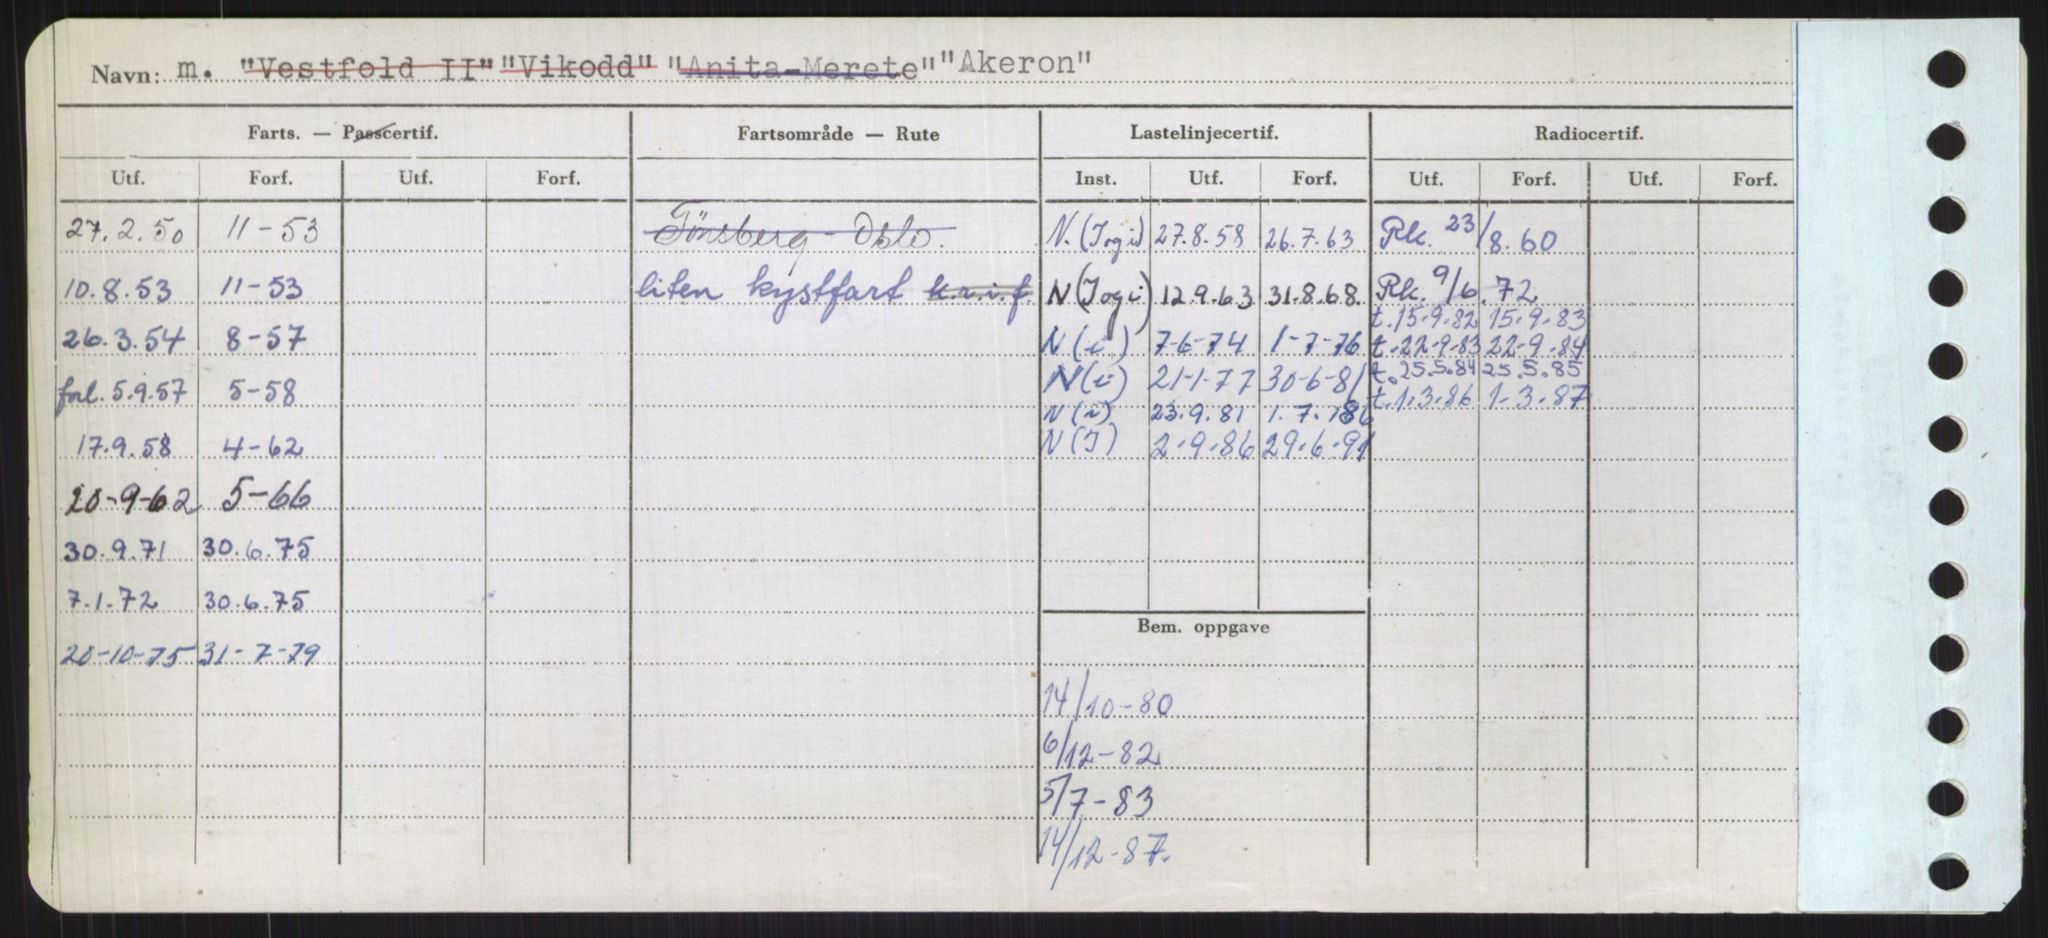 Navn: m. "Vestfold II" "Vikodd" "Anita-Merete" "Akeron"
Farts. — Passcertif. Fartsområde — Rute Lastelinjecertif. Radiocertif.
Utf. Forf. Utf. Forf. Inst. Utf. Forf. Utf. Forf. Utf. Forf.
27.2.50 11-53 Tönsberg - Oslo. N. (I og i) 27.8.58 26.7.63 Rk. 23/8.60
10.8.53 11-53 liten kystfart k.r.i.f. N (I og i) 12.9.63 31.8.68. Rk. 9/6.72
t. 15-9-82 15-9-83
26.3.54 8-57 N (i) 7-6-74 1-7-76 t. 22-9-83 22-9-84
t. 25.5.84 25.5.85
forl. 5.9.57 5-58 N (i) 21-1-77 30-6-81 t. 1.3.86 1.3.87
N (i) 23.9.81 1.7.86
17.9.58 4-62 N (I) 2-9-86 29-6-91
20-9-62 5-66
30.9.71 30.6.75
7.1.72 30.6.75
Bem. oppgave
20-10-75 31-7-79
14/10-80
6/12-82
5/7-83
14/12-87.